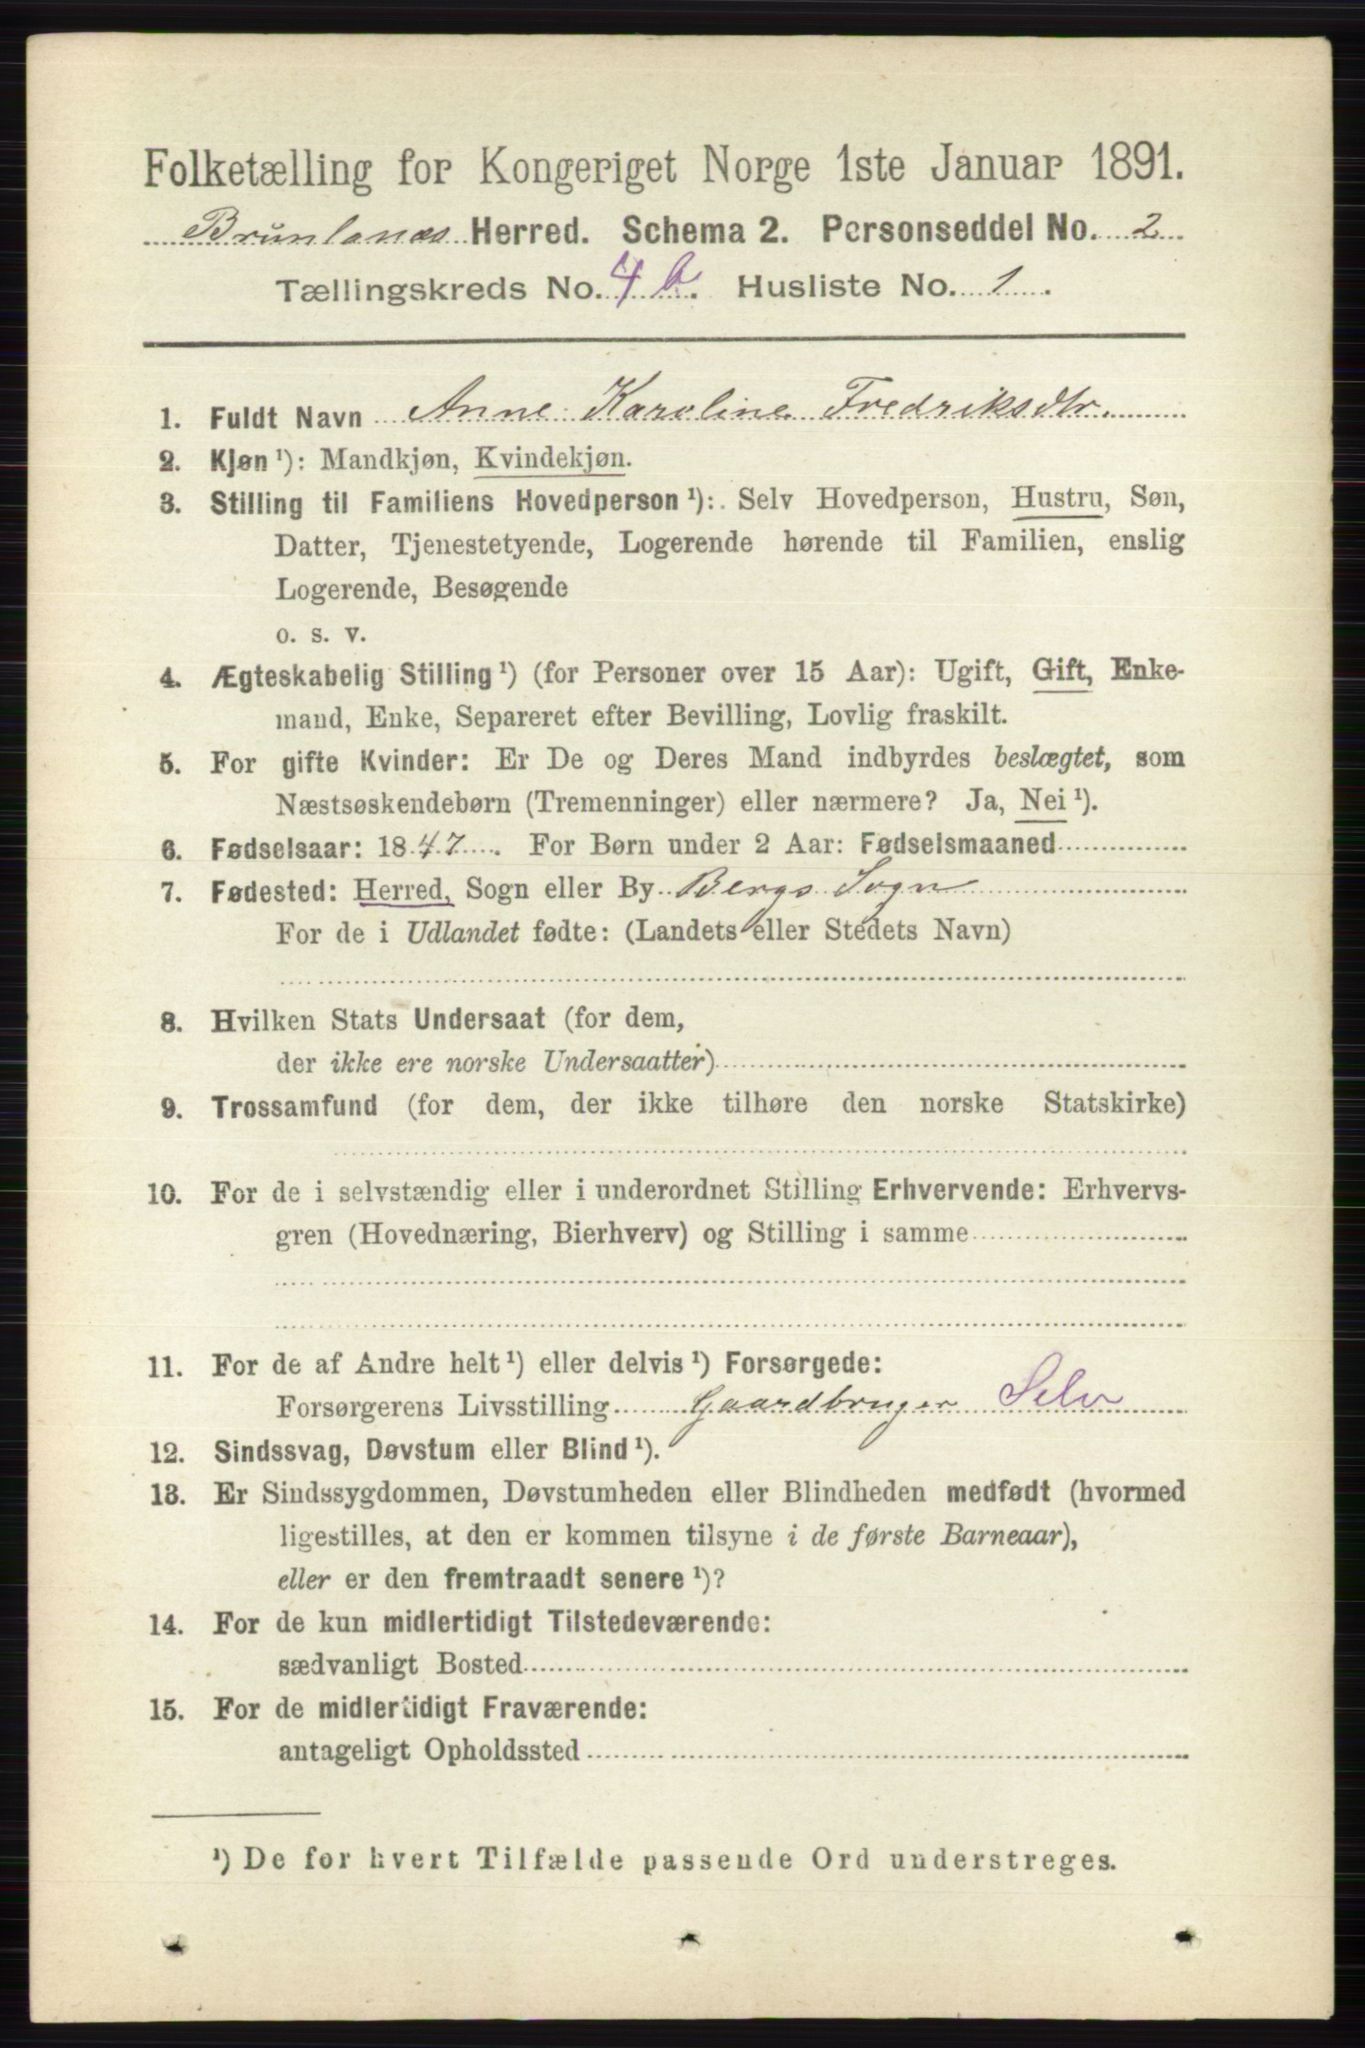 Folketælling for Kongeriget Norge 1ste Januar 1891.
Brunlanæs Herred. Schema 2. Personseddel No. 2
Tællingskreds No. 4 b. Husliste No. 1.
1. Fuldt Navn Anne Karoline Fredriksdtr.
2. Kjøn ¹): Mandkjøn, Kvindekjøn.
3. Stilling til Familiens Hovedperson ¹): Selv Hovedperson, Hustru, Søn,
Datter, Tjenestetyende, Logerende hørende til Familien, enslig
Logerende, Besøgende
o. s. v.
4. Ægteskabelig Stilling ¹) (for Personer over 15 Aar): Ugift, Gift, Enke-
mand, Enke, Separeret efter Bevilling, Lovlig fraskilt.
5. For gifte Kvinder: Er De og Deres Mand indbyrdes beslægtet, som
Næstsøskendebørn (Tremenninger) eller nærmere? Ja, Nei ¹).
6. Fødselsaar: 1847. For Børn under 2 Aar: Fødselsmaaned
7. Fødested: Herred, Sogn eller By Bergs Sogn
For de i Udlandet fødte: (Landets eller Stedets Navn)
8. Hvilken Stats Undersaat (for dem,
der ikke ere norske Undersaatter)
9. Trossamfund (for dem, der ikke tilhøre den norske Statskirke)
10. For de i selvstændig eller i underordnet Stilling Erhvervende: Erhvervs-
gren (Hovednæring, Bierhverv) og Stilling i samme
11. For de af Andre helt ¹) eller delvis ¹) Forsørgede:
Forsørgerens Livsstilling Gaardbruger Selv
12. Sindssvag, Døvstum eller Blind ¹).
13. Er Sindssygdommen, Døvstumheden eller Blindheden medfødt (hvormed
ligestilles, at den er kommen tilsyne i de første Barneaar),
eller er den fremtraadt senere ¹)?
14. For de kun midlertidigt Tilstedeværende:
sædvanligt Bosted
15. For de midlertidigt Fraværende:
antageligt Opholdssted
¹) De for hvert Tilfælde passende Ord understreges.